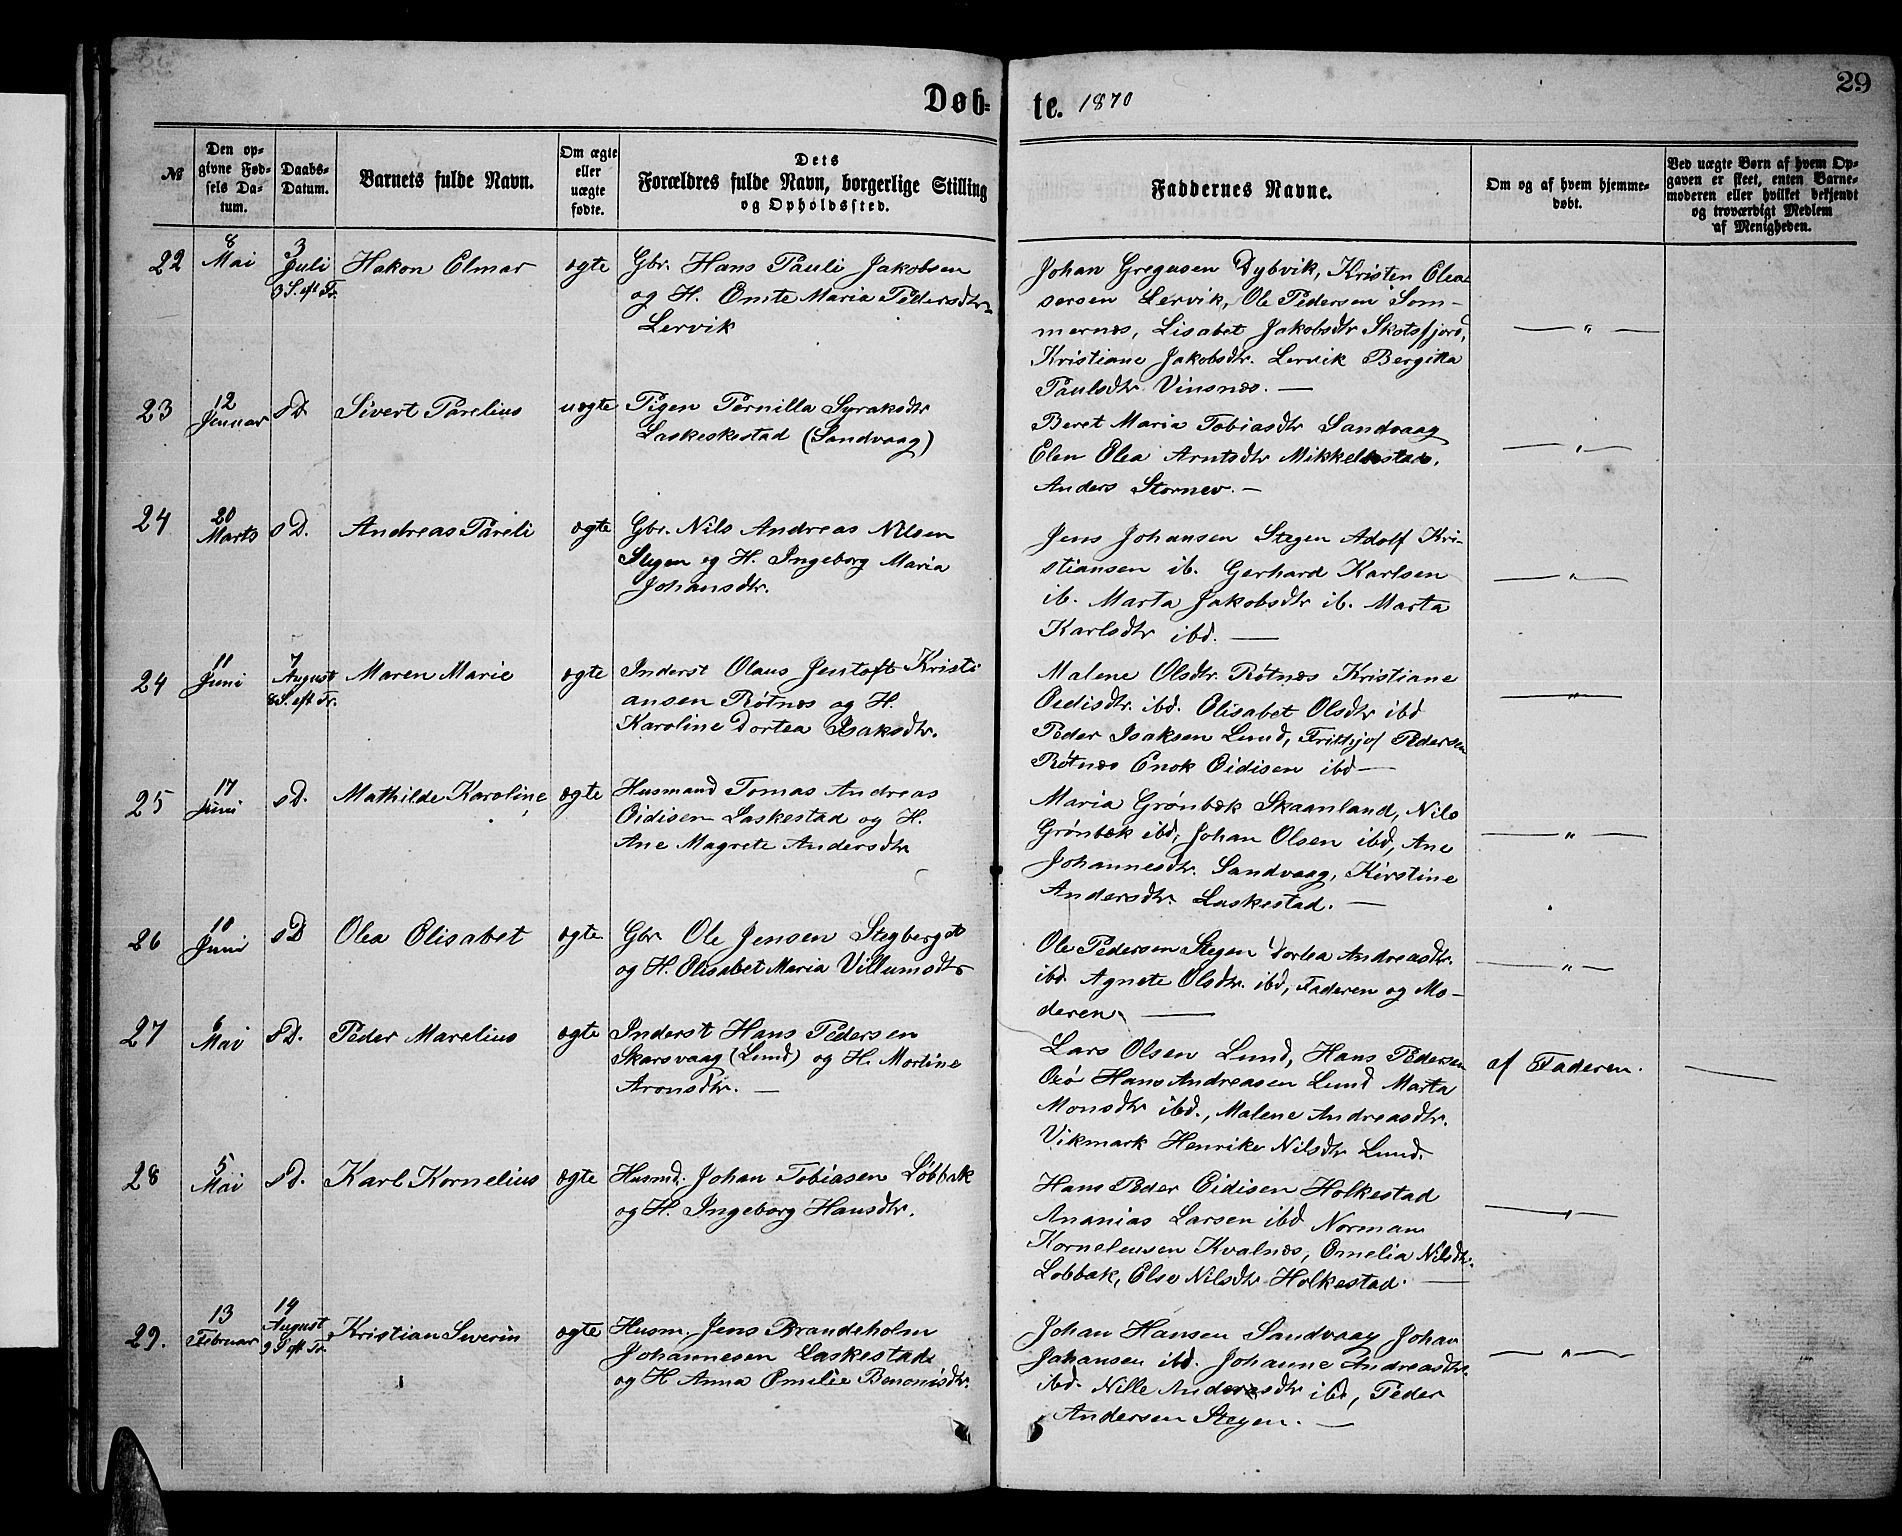 29
Døb- te. 1870
№
Den opgivne Fødsels Datum.
Daabs-Datum.
Barnets fulde Navn.
Om ægte eller uægte fødte.
Dets Forældres fulde Navn, borgerlige Stilling og Opholdssted.
Faddernes Navne.
Om og af hvem hjemmedøbt.
Ved uægte Børn af hvem Opgaven er skeet, enten Barnemoderen eller hvilket bekjendt og troværdigt Medlem af Menigheden.
22
8 Mai
3 Juli
3 S. eft Tr.
Hakon Elmar
ægte
Gbr. Hans Pauli Jakobsen
og H. Emte Maria Pedersdtr
Lervik
Johan Gregusen Dybvik, Kristen Elea-
sersen Lervik, Ole Pedersen Som-
mernæs, Lisabet Jakobsdtr Skotsfjord,
Kristiane Jakobsdtr. Lervik Bergitta
Paulsdtr. Vinsnæs. —
— " —
23
12 Januar
s D.
Sivert Parelius
uægte
Pigen Pernilla Syraksdtr
Laskeskestad (Sandvaag)
Beret Maria Tobiasdtr Sandvaag
Elen Olea Arntsdtr Mikkelsstad.
Anders Stornev. —
— " —
24
20 Marts
s D.
Andreas Pareli
ægte
Gbr. Nils Andreas Nilsen
Stegen og H. Ingeborg Maria
Johansdtr.
Jens Johansen Stegen Adolf Kri-
stiansen ib. Gerhard Karlsen
ib. Marta Jakobsdtr ib. Marta
Karlsdtr ibd. —
— " —
24
11 Juni
7 August
8 S. eft Tr.
Maren Marie
ægte
Inderst Olaus Jentoft Kristi
ansen Røtnæs og H.
Karoline Dortea Isaksdtr.
Malene Olsdtr. Røtnæs Kristiane
Eidisdtr. ibd. Elisabet Olsdtr ibd
Peder Isaksen Lund, Fritthjof Pedersen
Røtnæs Enok Eidisen ibd —
— " —
25
17 Juni
s D.
Mathilde Karoline
ægte
Husmand Tomas Andreas
Eidisen Laskestad og H.
Ane Magrete Andersdtr
Maria Grønbæk Skaanland, Nils
Grønbæk ibd, Johan Olsen ibd, Ane
Johannesdtr. Sandvaag, Kirstine
Andersdtr. Laskestad. —
— " —
26
10 Juni
s D
Olea Elisabet
ægte
Gbr Ole Jensen Stegberget
og H. Elisabet Maria Villumsdtr
Ole Pedersen Stegen Dortea Andreasdtr.
ibd. Agnete Olsdtr. ibd, Faderen og Mo-
deren. —
— " —
27
6 Mai
s D.
Peder Marelius
ægte
Inderst Hans Pedersen
Skarsvaag (Lund) og H. Martine
Aronsdtr. —
Lars Olsen Lund, Hans Pedersen
Hans Andreasen Lund Marta
Monsdtr ibd., Malene Andreasdtr.
Vikmark Henrike Nilsdtr Lund.
af Faderen.
—
28
5 Mai
s D.
Karl Kornelius
ægte
Husmd. Johan Tobiasen Løbbak
og H. Ingeborg Hansdtr.
Hans Peder Eidisen Holkestad
Ananias Larsen ibd Norman
Korneliusen Kvalnæs, Emelia Nilsdtr.
Løbbak, Else Nilsdtr Holkestad. —
— " —
29.
13 Februar
14 August
9 S eft Tr.
Kristian Severin
ægte
Husm. Jens Brandsholm
Johannesen Laskestad
og H Anna Emilie Benonisdtr.
Johan Hansen Sandvaag Johan
Johansen ibd. Johanne Andreasdtr
ibd. Nille Andersdtr ibd, Peder
Andersen Stegen. —
— " —